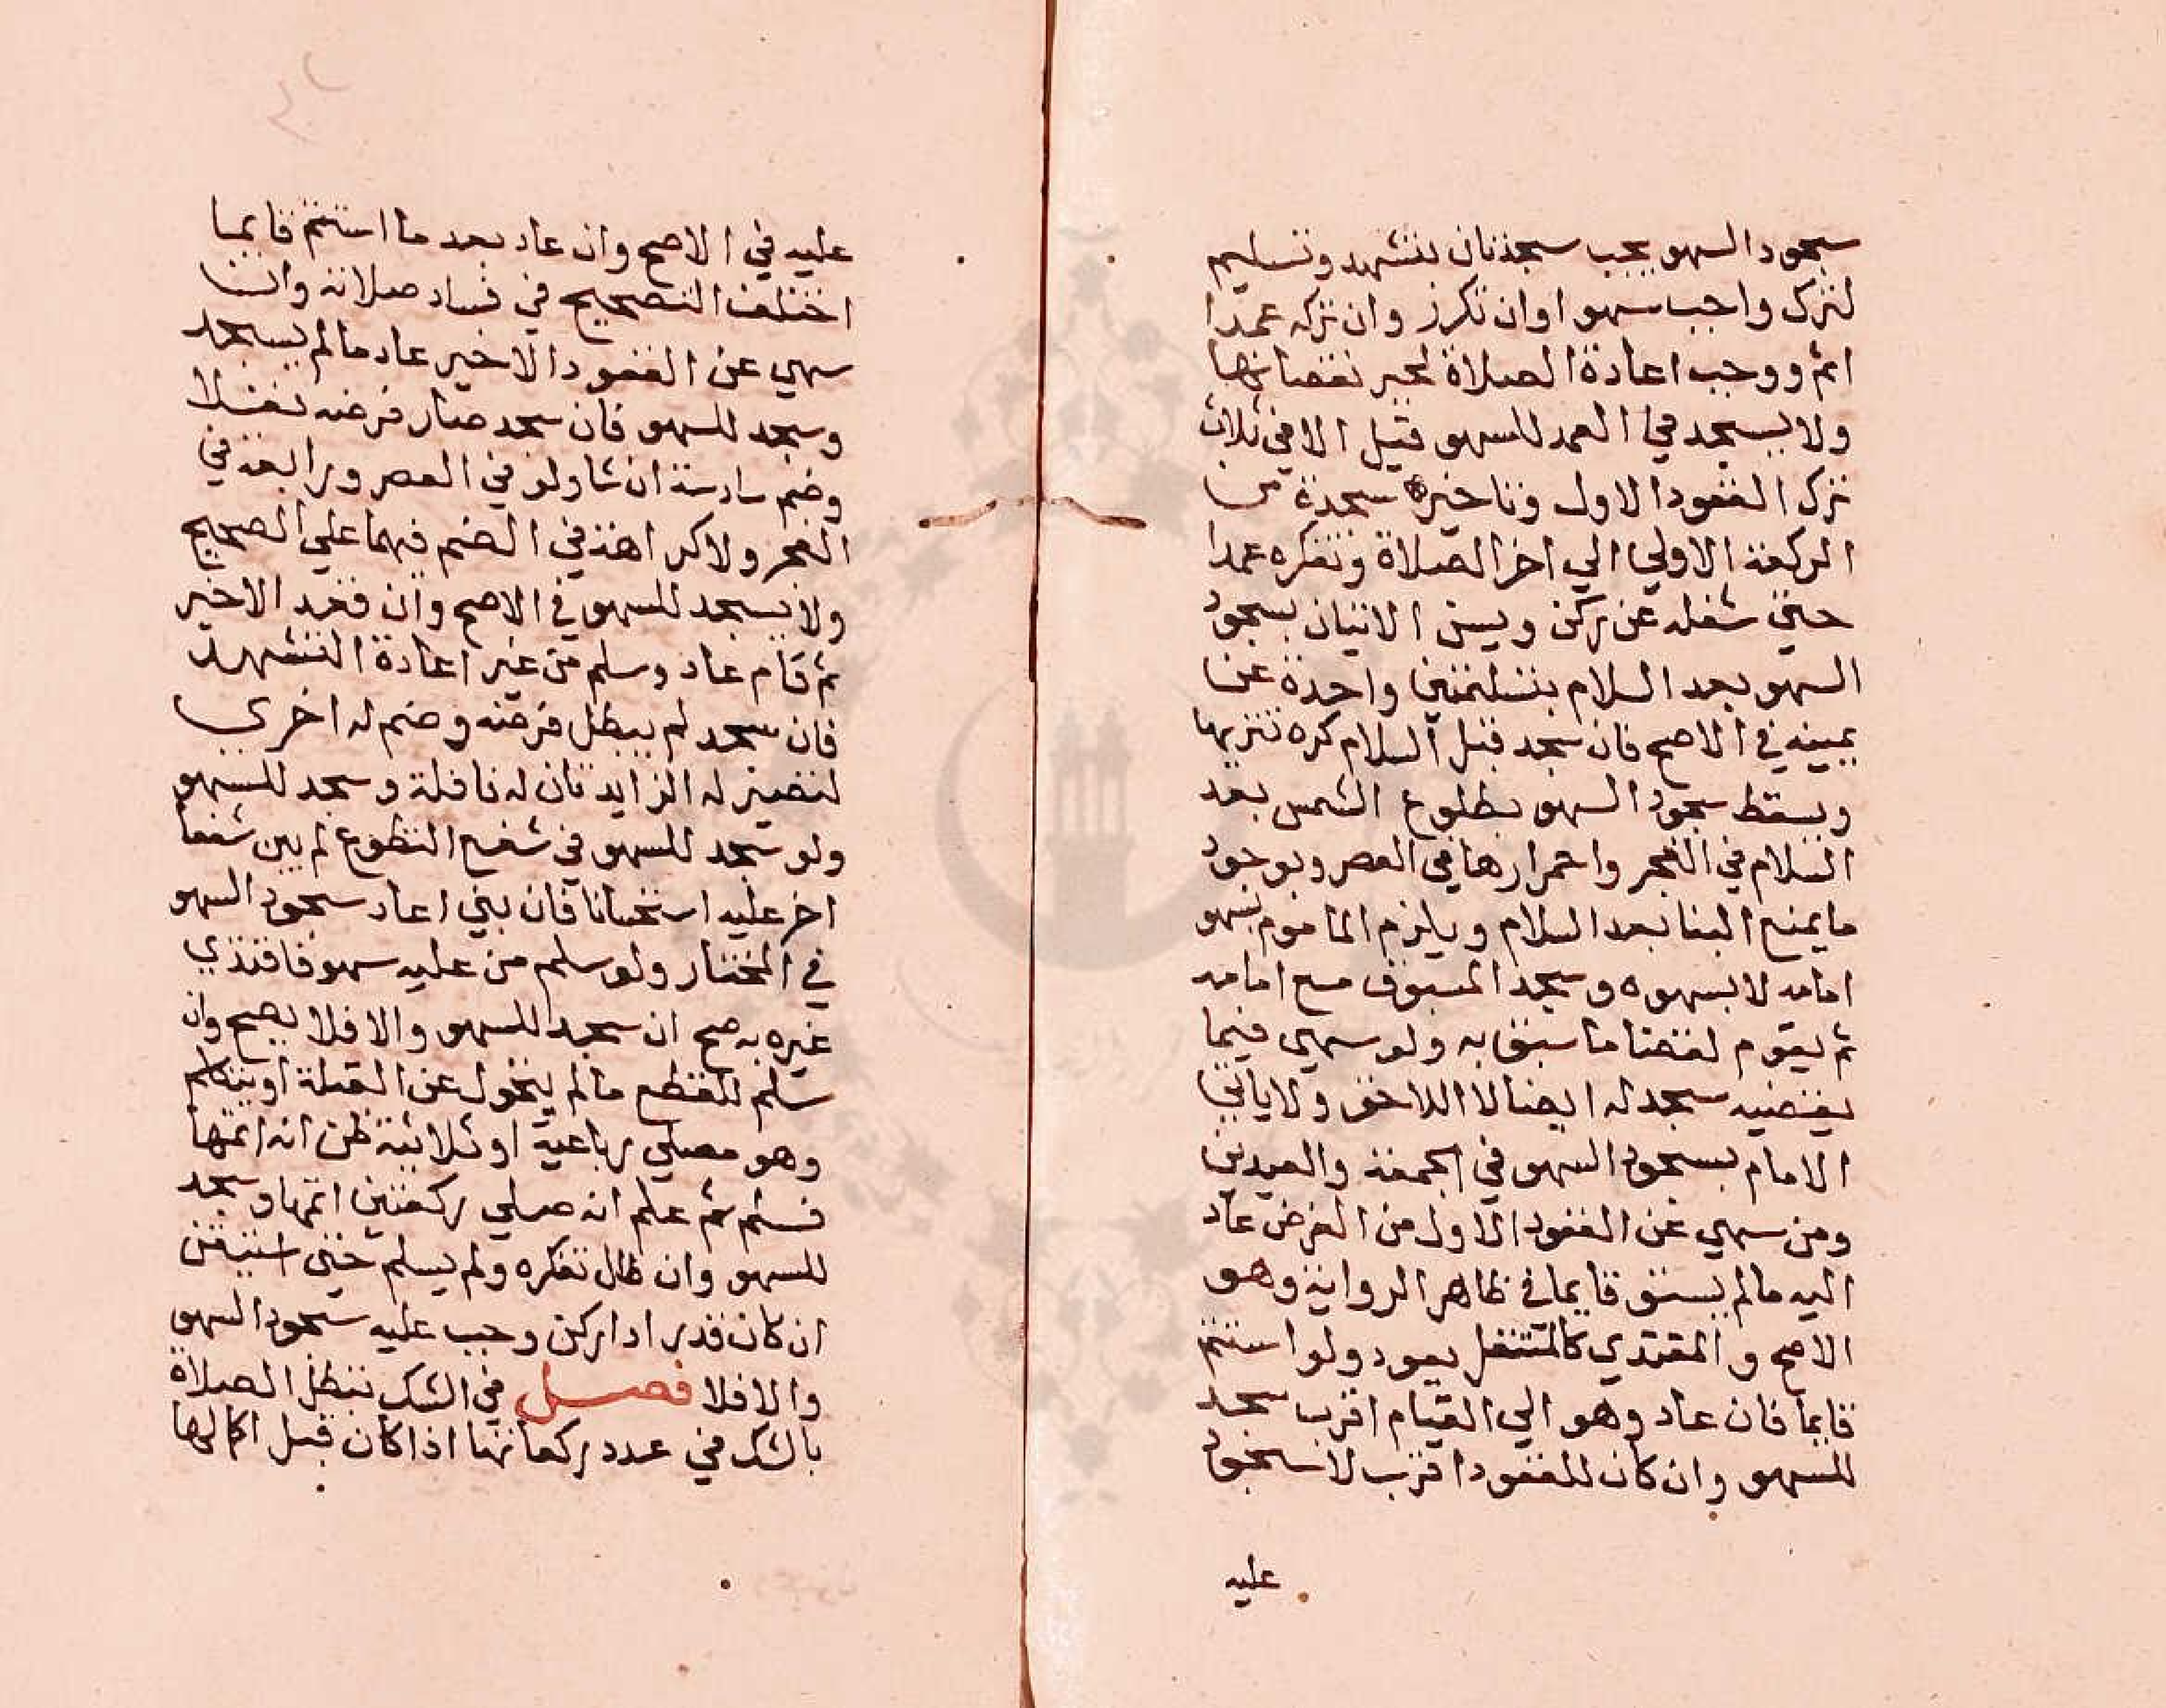 سجود السهو يجب سجدتان بتشهد وتسليم
لترك واجب سهوا وان تكرر وان تركه عمدا
اثم ووجب اعادة الصلاة لجبر نقصانها
ولا يسجد في العمد للسهو قيل الا في ثلاث
ترك القعود الاول وتاخيره سجدة من
الركعة الاولي الي اخر الصلاة وتفكره عمدا
حتي شغله عن ركن ويسن الاتيان بسجود
السهو بعد السلام بتسليمتين واحدة عن
يمينه في الاصح فان سجد قبل السلام كره تنزيها
ويسقط سجود السهو بطلوع الشمس بعد
السلام في الفجر واحمرارها في العصر وبوجود
ما يمنع البنا بعد السلام ويلزم الماموم بسهو
امامه لا بسهوه وسجد المسبوق مع امامه
ثم يقوم لقضا ما سبق به ولو سهي فيما
يقضيه سجد له ايضا لا اللاحق ولا ياتي
الامام بسجود السهو في الجمعة والعيدين
ومن سهي عن القعود الاول من الفرض عاد
اليه ما لم يستو قايما في ظاهر الرواية وهو
الاصح والمقتدي كالمتنفل يعود ولو استتم
قايما فان عاد وهو الي القيام اقرب سجد
للسهو وان كان للقعود اقرب لا سجود
عليه
عليه في الاصح وان عاد بعد ما استتم قايما
اختلف التصحيح في فساد صلاته وان
سهي عن القعود الاخير عاد ما لم يسجد
وسجد للسهو فان سجد صار فرضه نفلا
وضم سادسة ان شا ولو في العصر ورابعة في
الفجر ولا كراهة في الضم فيهما علي الصحيح
ولا يسجد للسهو في الاصح وان قعد الاخير
ثم قام عاد وسلم من غير اعادة التشهد
فان سجد لم يبطل فرضه وضم له اخري
لتصير له الزايدتان له نافلة وسجد للسهو
ولو سجد للسهو في شفع التطوع لم يبن شفعا
اخر عليه استحبابا فان بني اعاد سجود السهو
في المختار ولو سلم من عليه سهو فاقتدي
غيره به صح ان سجد للسهو والا فلا يصح وان
سلم للقطع ما لم يتحول عن القبلة او يتكلم
وهو مصلي رباعية او ثلاثية ظن انه اتمها
فسلم ثم علم انه صلي ركعتين اتمها وسجد
للسهو وان طال تفكره ولم يسلم حتي استيقن
ان كان قدر ادا ركن وجب عليه سجود السهو
والا فلا فصل في الشك تبطل الصلاة
بالشك في عدد ركعاتها اذا كان قبل اكمالها